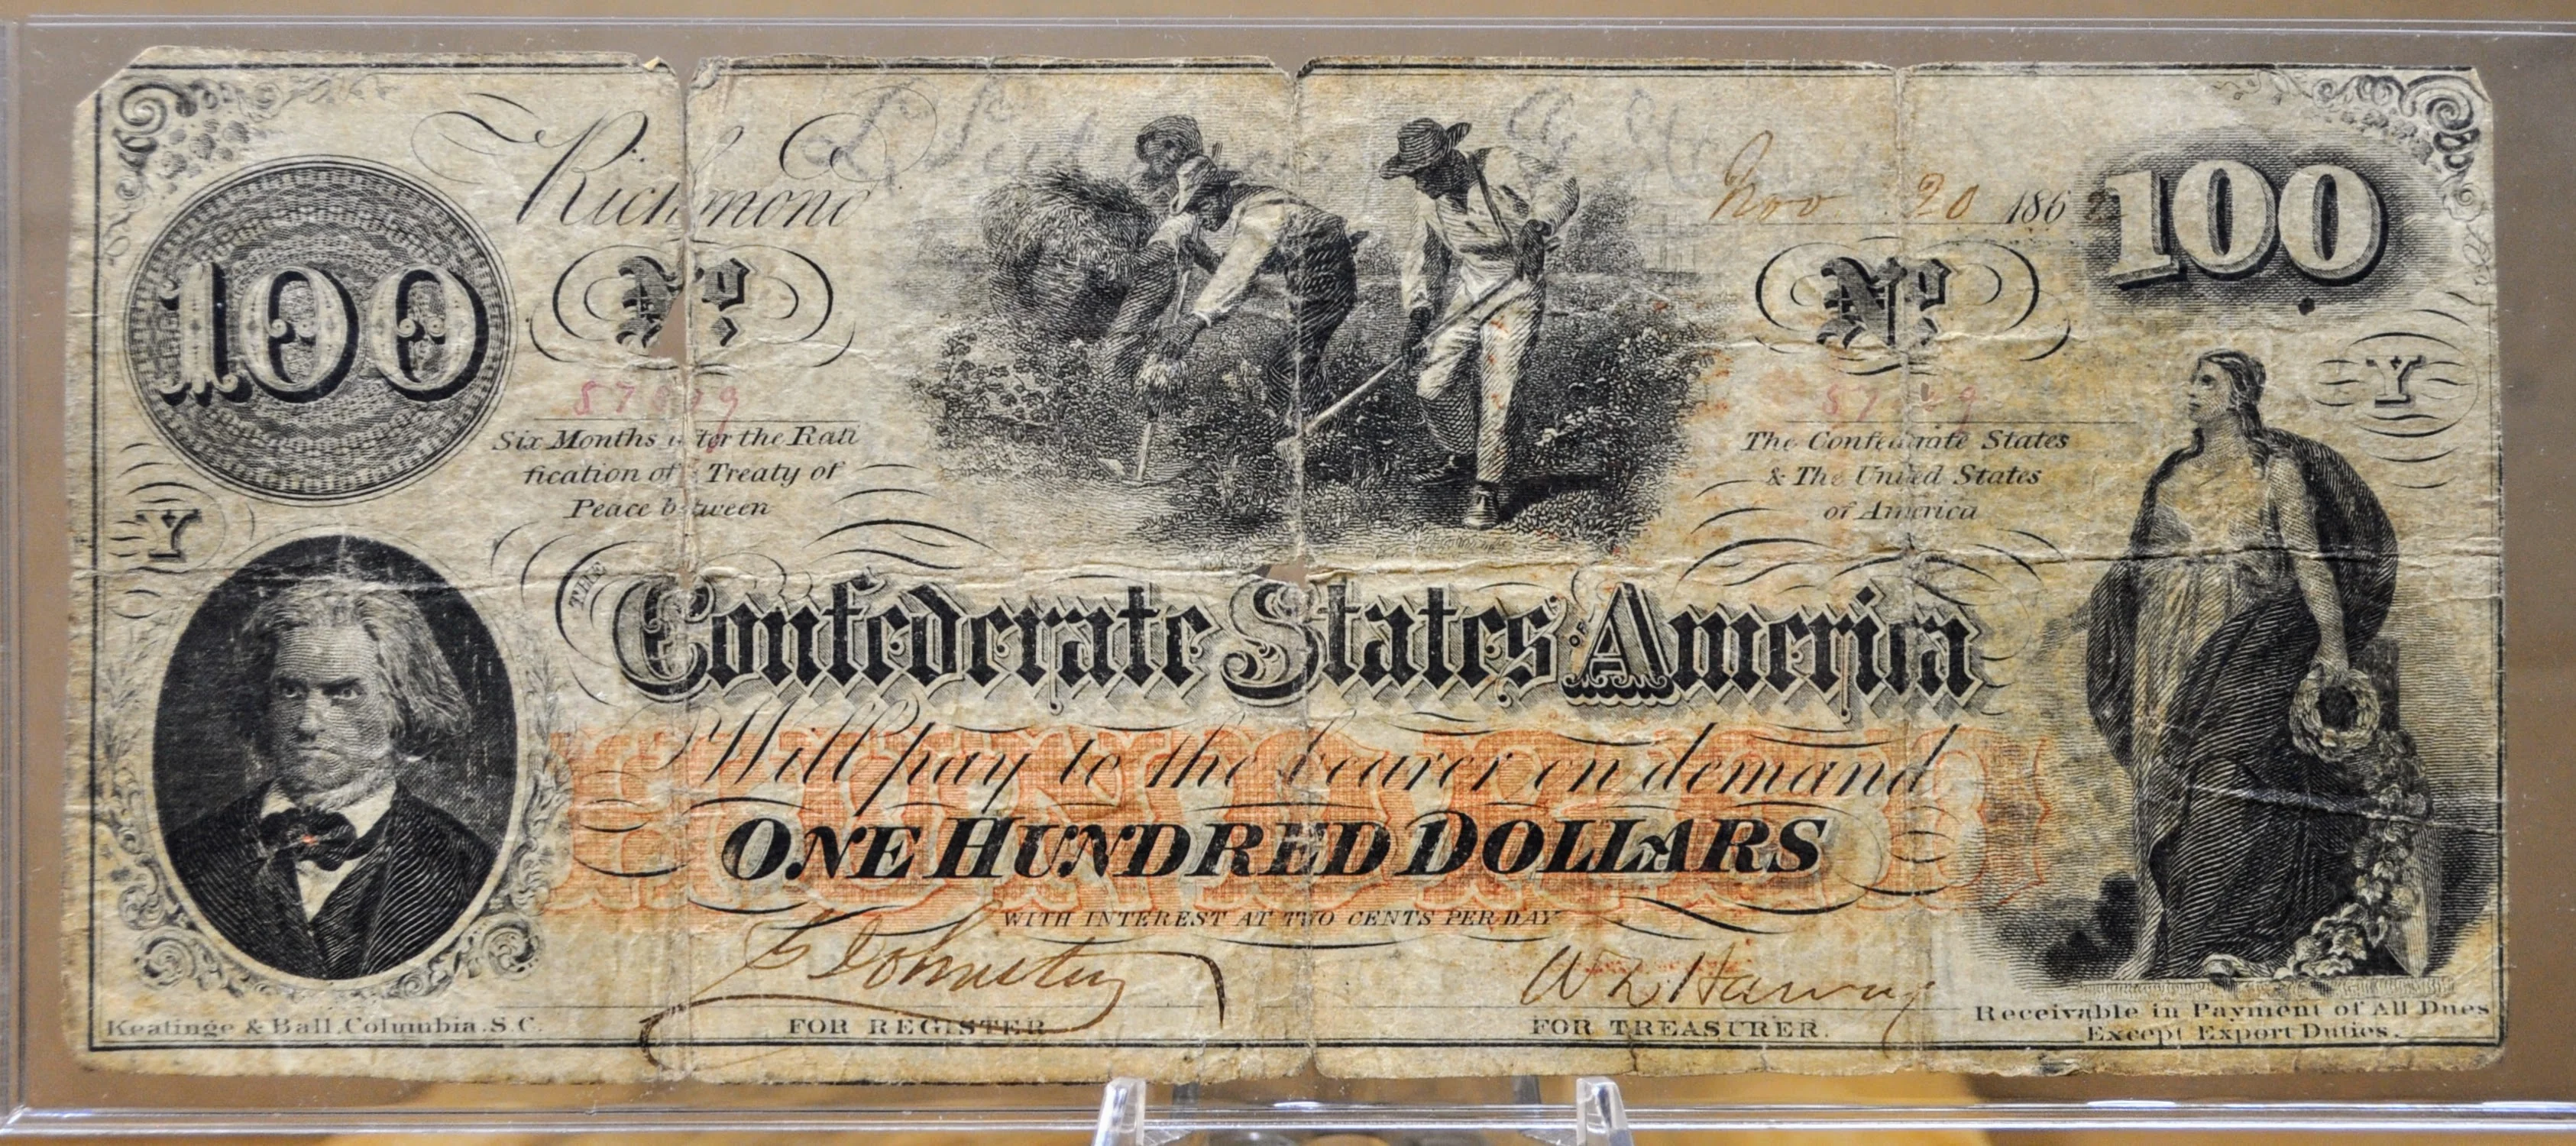 100
Richmond
Nov. 20 1862
100
No
No
Six Months after the Rati
fication of a Treaty of
Peace between
The Confederate States
& The United States
of America
Y
Y
THE
Confederate States OF America
HUNDRED
Will pay to the bearer on demand
ONE HUNDRED DOLLARS
WITH INTEREST AT TWO CENTS PER DAY
Keatinge & Ball, Columbia, S.C.
FOR REGISTER
FOR TREASURER.
Receivable in Payment of All Dues
Except Export Duties.